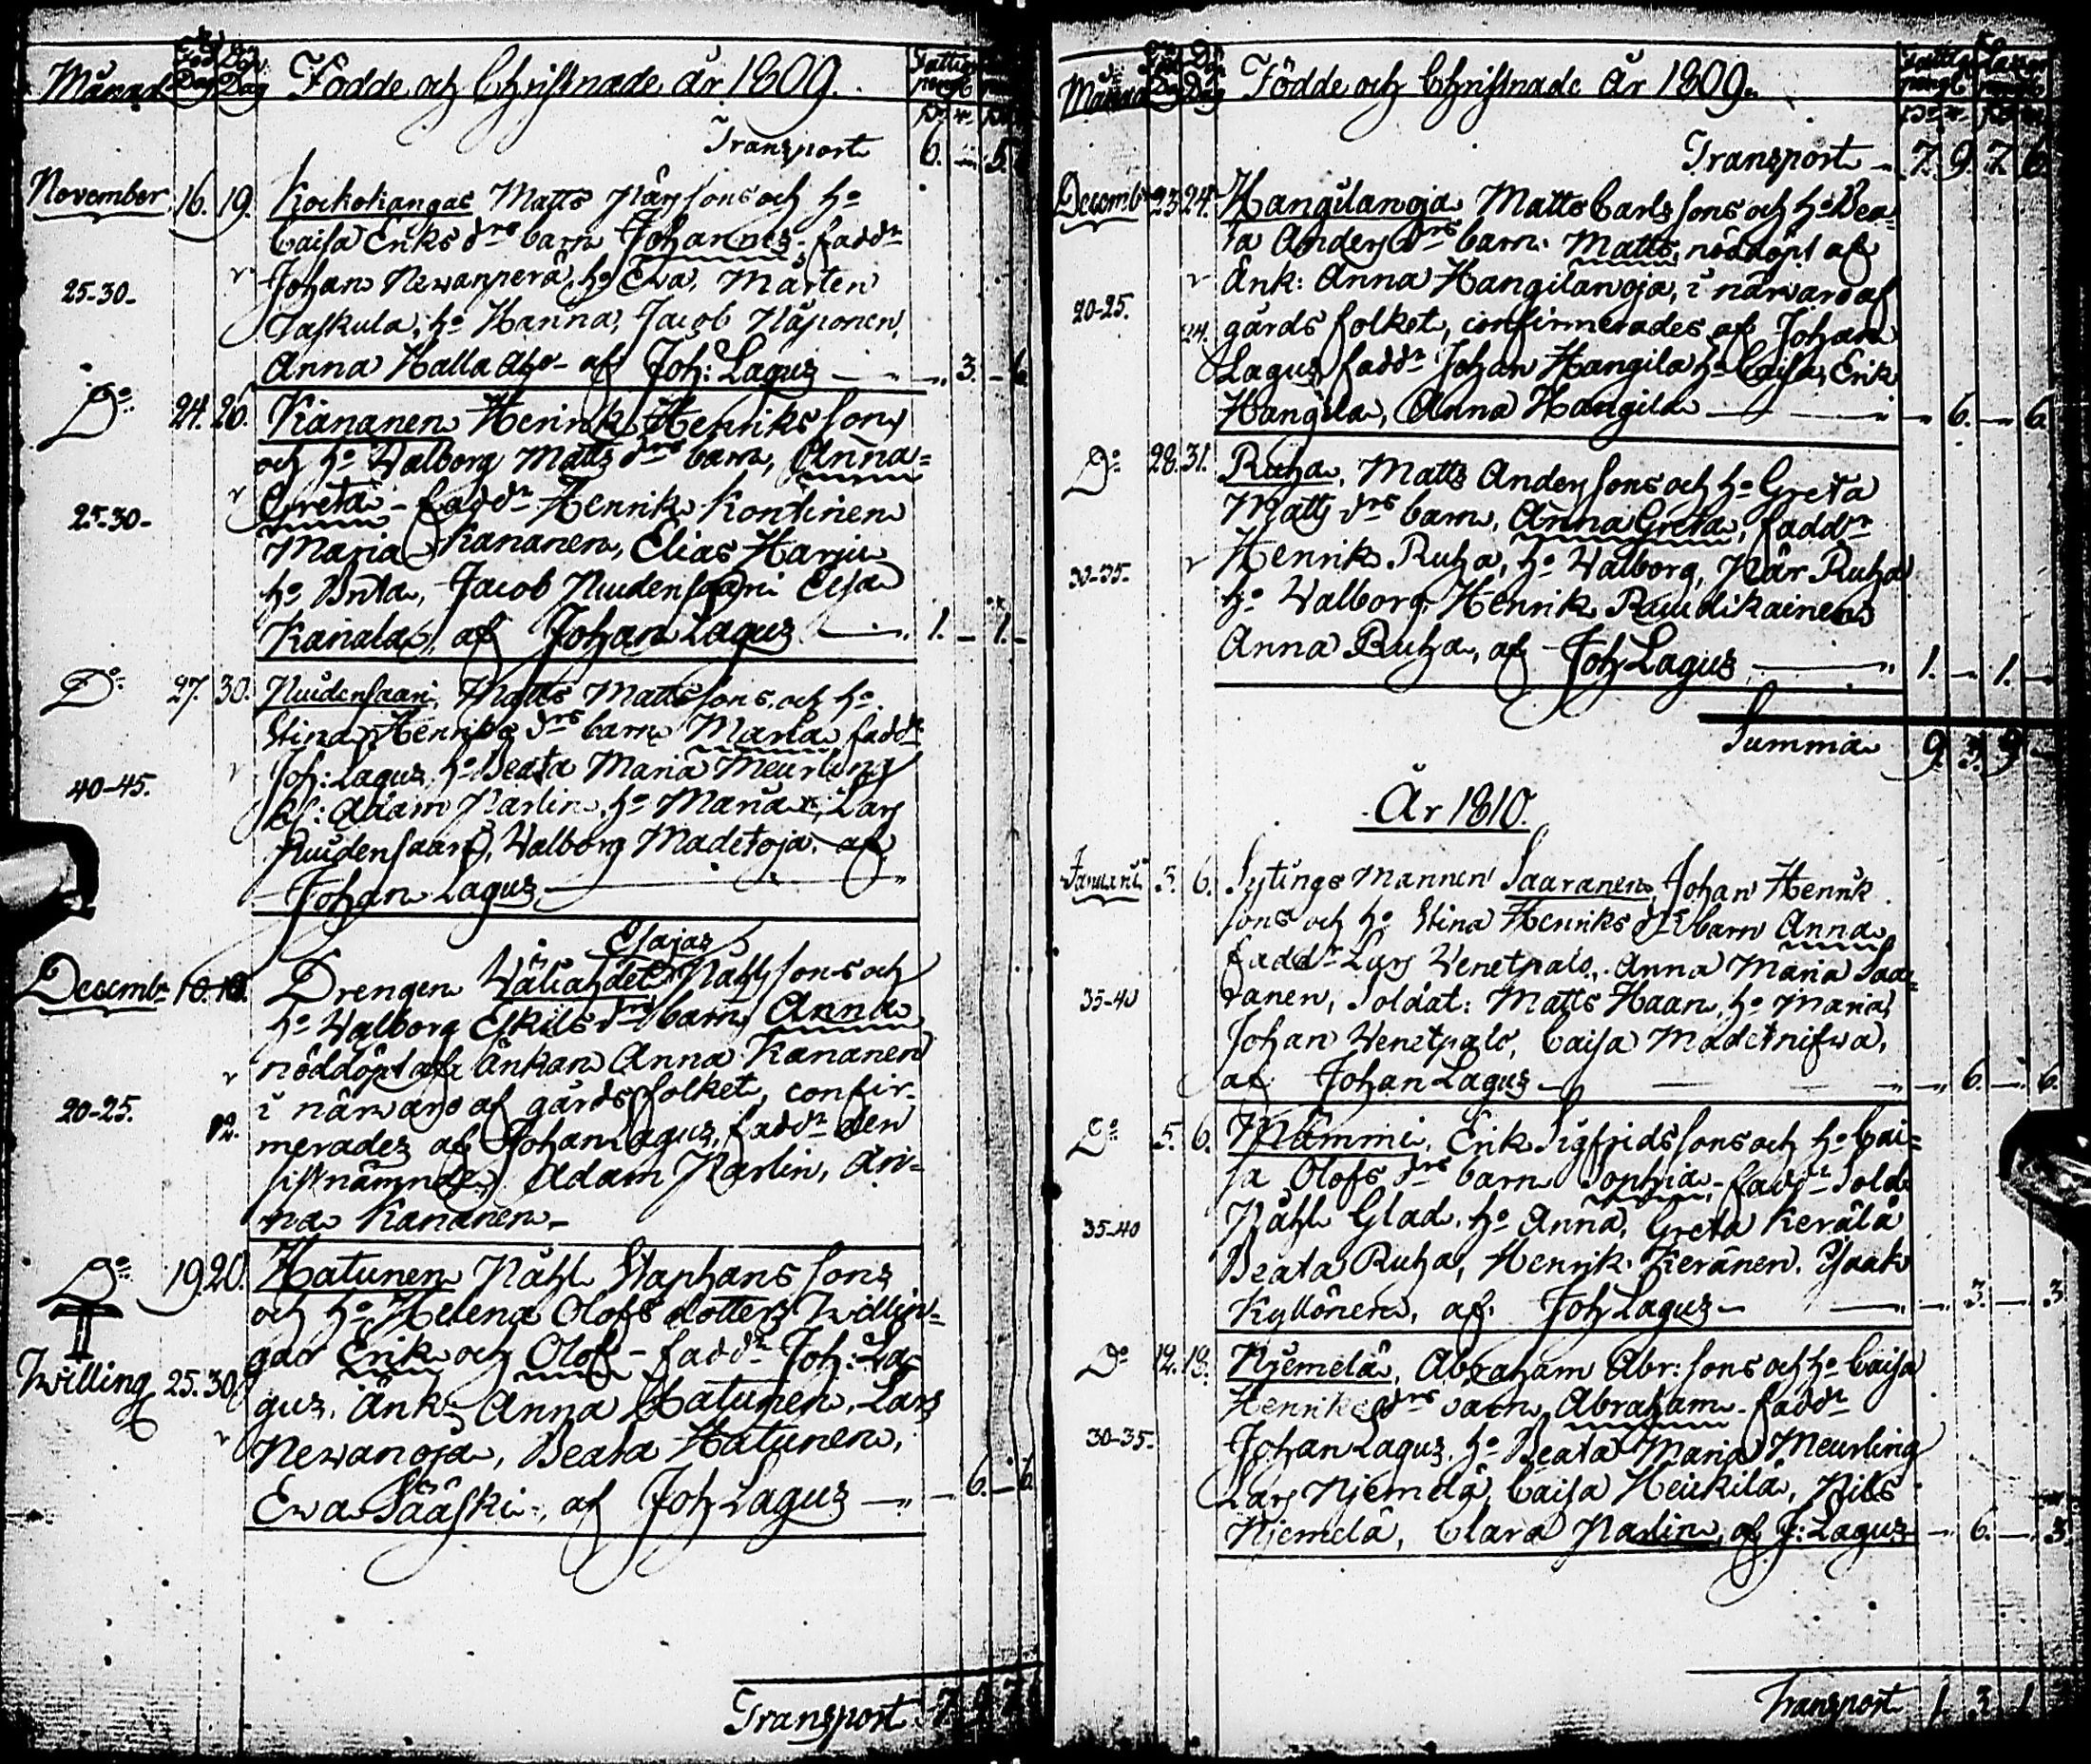 Månad Föd Dag Döp Dag Födde och Christnade år 1809. Fattig pengl
Transport 6. — 5.
November 16. 19. Kockokangas Matts Pärssons och h:o
Caisa Eriks d:rs barn Johannes, fadd:r
Johan Newanperä, h:o Ewa, Mårten
25-30.
Taskula, h:o Hanna, Jacob Näponen,
Anna Halla Aho - af Joh: Lagus — 3. - 6.
D:o 24. 26. Kananen Henrik Henriks sons
och h:o Walborg Matts d:rs barn, Anna=
Greta - fadd:r Henrik Kontinen
25-30-
Maria Kananen, Elias Harju
h:o Brita, Jacob Nuidensaari Elsa
Kanala, af Johan Lagus — 1. - 1. -
D:o 27. 30. Nuidensaari, Matts Matts sons, och h:o
Stina Henriks d:rs barn Maria, fadd:r
Joh: Lagus, h:o Beata Maria Meurling
40-45.
Adam Karlin, h:o Maria, Lars
Nuidensaari, Walborg Madetoja, af
Johan Lagus —
Esajas
Decemb: 10. 12. Drengen Wäliahdet Påhls sons och
h:o Walborg Eskils d:rs barn Anna
nöddöpt af Änkan Anna Kananen
i närwaro af gårdsfolket, confir-
20-25. 12.
merades af Johan Lagus, fadd:r den
sistnämnde, Adam Karlin, An-
na Kananen -
D:o 19. 20. Hatunen Påhl Staphans sons
och h:o Helena Olofs dotters Twillin-
gar Erik och Olof - fadd:r Joh: La-
Twilling 25. 30.
gus, Änk: Anna Hatunen, Lars
Newanoja, Beata Hatunen,
Ewa Sääski, af Joh Lagus — - 6. - 6.
Transport 7. 9. 7.
Månad Dag Dag Födde och Christnade År 1809.
Transport — 7. 9. 7. 6.
Decemb: 23. 24. Hangilanoja Matts Carls sons och h:o Bea=
ta Anders d:rs barn Matts, nöddöpt af
Änk: Anna Hangilanoja, i närwaro af
20-25. 24.
gårds folket, confirmerades af Johan
Lagus, fadd:r Johan Hangila h:o Caisa, Erik
Hangila, Anna Hangila — - 6. - 6.
D:o 28. 31. Ruha, Matts Anders sons och h:o Greta
Matts d:rs barn, Anna Greta, fadd:r
Henrik Ruha, h:o Walborg, Pär Ruha
30-35.
h:o Walborg, Henrik Raudikainen
Anna Ruha, af Joh Lagus — 1. - 1. -
Summa 9. 3. 9 -
År 1810.
Januarii 3. 6. Sytings mannen Saaranen, Johan Henrik
sons och h:o Stina Henriks d:rs barn Anna
fadd:r Lars Wenetpalo, Anna Maria Saa-
35-40
ranen, Soldat: Matts Haan, h:o Maria,
Johan Wenetpalo, Caisa Madetnifwa,
af Johan Lagus — - 6. - 6.
D:o 5. 6. Mämmi, Erik Sigfrids sons och h:o Cai=
sa Olofs d:rs barn Sophia, fadd:r Sold:
Påhl Glad, h:o Anna, Greta Kerälä
35-40
Beata Ruha, Henrik Keränen, Isaak
Kyllönen, af Joh Lagus — - 3. - 3
D:o 12. 13. Njemelä, Abraham Abr: sons och h:o Caisa
Henriks d:rs barn Abraham - fadd:r
Johan Lagus, h:o Beata Maria Meurling
30-35.
Lars Njemelä, Caisa Heikilä, Nils
Njemelä, Clara Karlin, af J: Lagus - 6. - 3.
Transport 1. 3. 1.